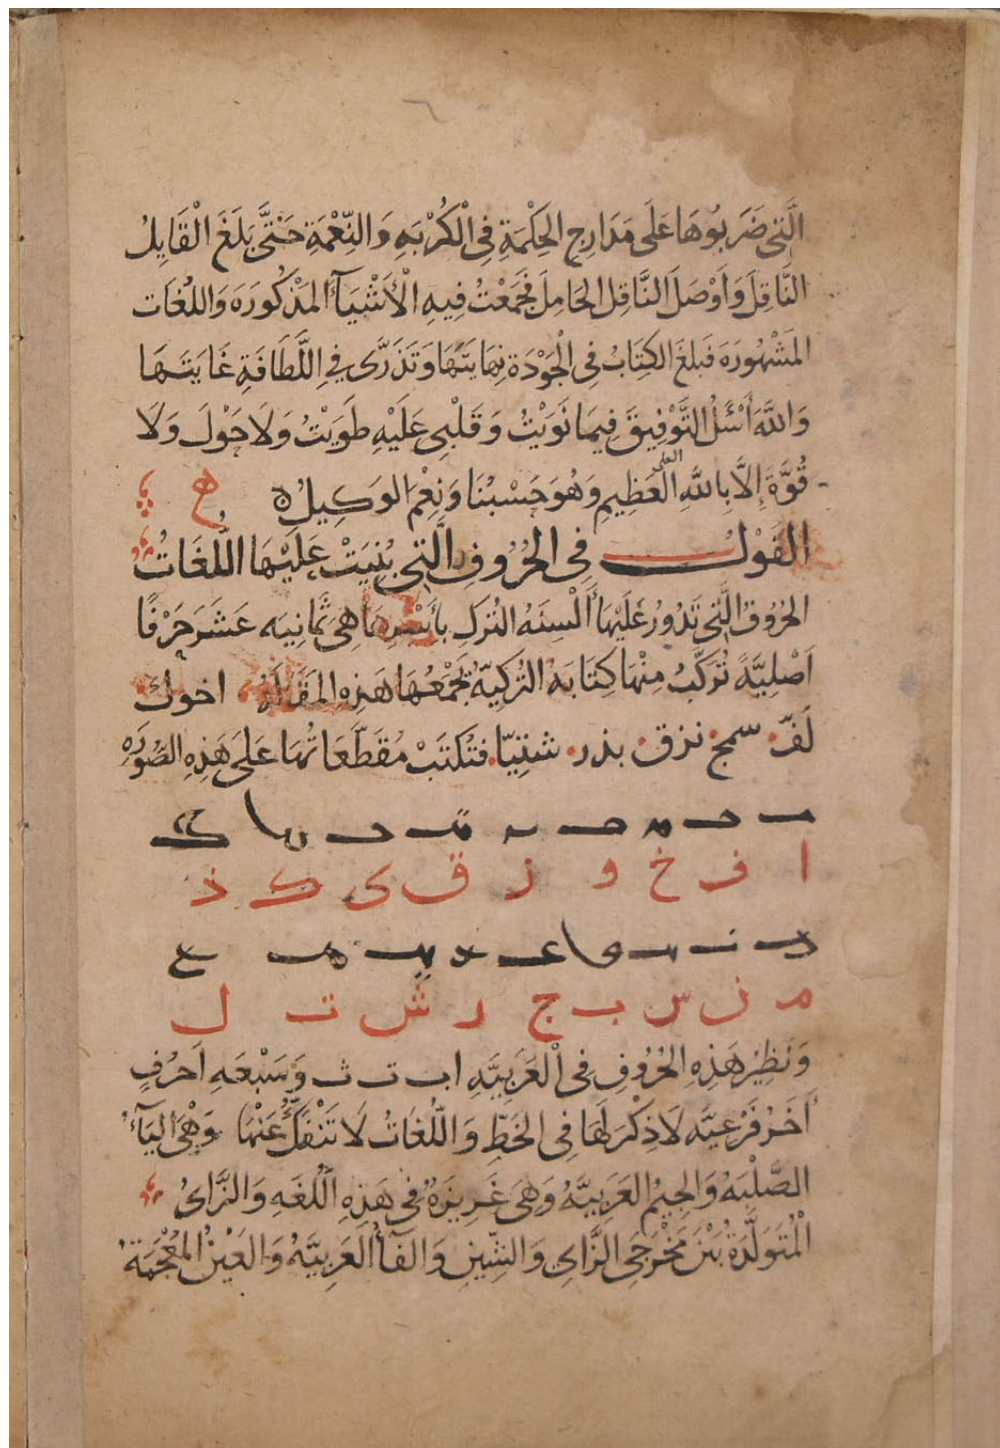 الَّتِى ضَرَبُوهَا عَلَى مَدَارِجِ الحِكْمَةِ فِى الْكُرْبَةِ وَالنِّعْمَةِ حَتَّى بَلَغَ الْقَايِلُ
النَّاقِلَ وَاَوْصَلَ النَّاقِل الحَامِلَ فَجَمَعْتُ فِيهِ الْاَشْيَآءَ المَذْكُورَةَ وَاللُّغَات
المَشْهُورَة فَبلغَ الكِتَابُ فِى الْجَوْدَة نِهَايَتَهَا وَتَذَرَّى فِي اللَّطَافَةِ غَايَتَهَا
وَاللَّهَ أَسْئَلُ التَّوْفِيقَ فِيمَا نَوَيْتُ وَقَلْبِى عَلَيْهِ طَوَيْتُ وَلَا حَوْلَ وَلَا
قُوَّةَ إِلَّا بِاللَّهِ العلى العَظِيمِ وَهُوَ حَسْبُنَا وَنِعْمَ الوَكِيلُ
القَوْلُ فِى الحُرُوفِ الَّتِى بُنِيَتْ عَلَيْهَا اللُّغَاتُ
الحُرُوفُ الَّتِى تَدُورُ عَلَيْهَا أَلْسِنَهُ التُرْكِ بِأَسْرِهَا هِىَ ثَمَانِيَه عَشَرَ حَرْفًا
اَصْلِيَّةً تُرَكَّبُ مِنْهَا كِتَابَهُ التُرْكِيّه تَجْمَعُهَا هَذِهِ المَقَالَهُ اخوك
لَفّ سمج نزق بذر شتنيّا فتُكتَبْ مُقَطَّعَاتُهَا عَلَى هَذِهِ الصُّورَهِ
ا ف خ و ز ق ى ك ذ
م ن س ب ج ر ش ت ل
وَنَظِيرُ هَذِهِ الحُرُوفِ فِى الْعَرَبِيَّهِ ا ب ت ث وَسَبْعَه اَحرُفٍ
أُخَرْ فَرْعِيَّه لَا ذِكْرَ لَهَا فِى الخَطِّ وَاللُّغَاتُ لَا تَنْفَكُّ عَنْهَا وَهْىَ البَآءُ
الصُّلْبَهُ وَالجِيمُ العَرَبِيَّهُ وَهِىَ غَرِيزَهٌ فِى هَذِهِ اللُّغَهِ وَالزَّاىُ
الْمُتَوَلَّدَةُ بَيْنَ مَخْرَجَىِ الزَّاىِ وَالشِّينِ وَالفَآءُ العَرَبِيَّهُ وَالغَيْنُ المُعْجَمَةُ